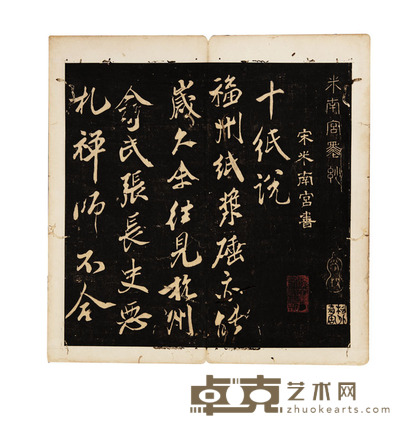 米南宮墨妙
宋米南宮書
十紙說
福州紙漿硾亦能
歲久余往見杭州
俞氏張長史惡
札禪師不合
卓克艺术网
zhuokearts.com